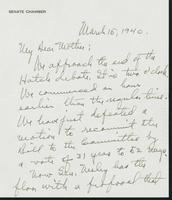 SENATE CHAMBER
March 15, 1940.
My Dear Mother;
We approach the end of the
Hatch debate. It is two o'clock
We commenced an hour
earlier than the regular time.
We have just defeated a
motion to recommit the
Bill to the Committee by
a vote of 31 yeas to 52 Nays.
Now Sen. Neely has the
floor with a proposal that